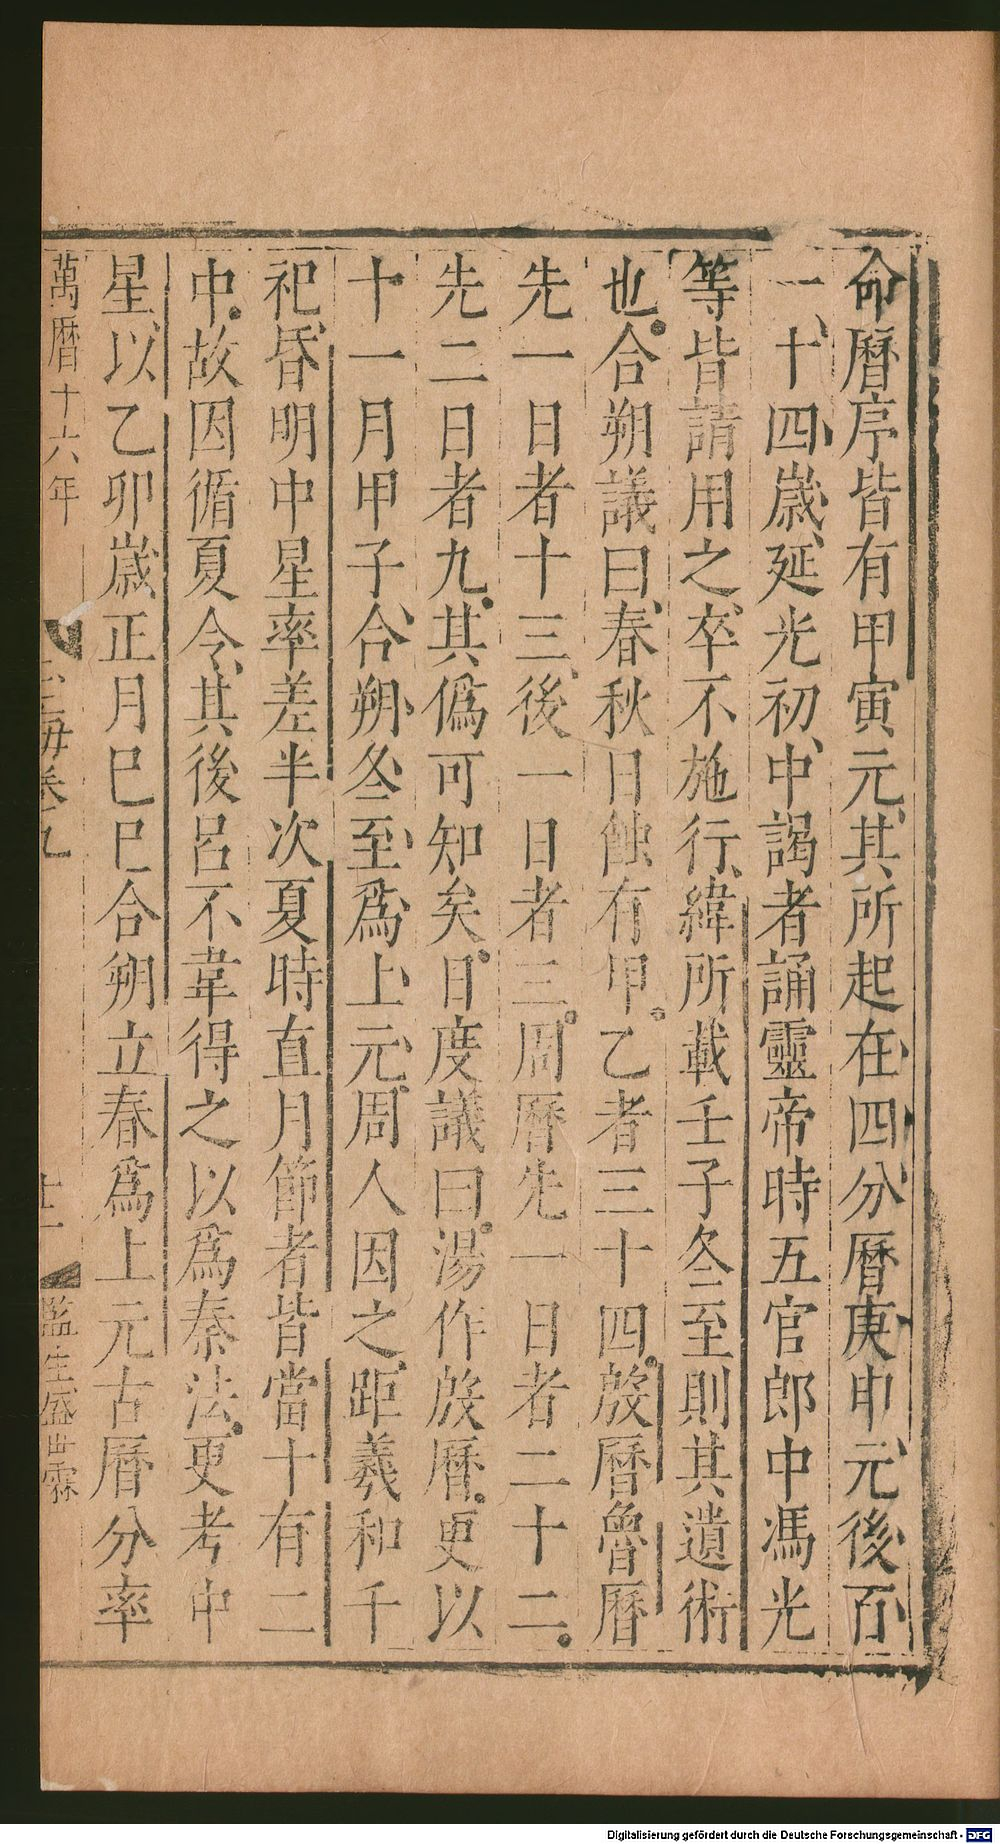 命曆序皆有甲寅元其所起在四分曆庚申元後百
一十四歲延光初中謁者誦靈帝時五官郎中馮光
等皆請用之卒不施行緯所載壬子冬至則其遺術
也合朔議曰春秋日蝕有甲乙者三十四殷曆魯曆
先一日者十三後一日者三周曆先一日者二十二
先二日者九其偽可知矣日度議曰湯作殷曆更以
十一月甲子合朔冬至爲上元周人因之距羲和千
祀昏明中星率差半次夏時直月節者皆當十有二
中故因循夏令其後呂不韋得之以爲秦法更考中
星以乙卯歲正月巳巳合朔立春爲上元古曆分率
萬曆十六年 玉海卷九 十一 監生盛世霖
Digitalisierung gefördert durch die Deutsche Forschungsgemeinschaft - DFG